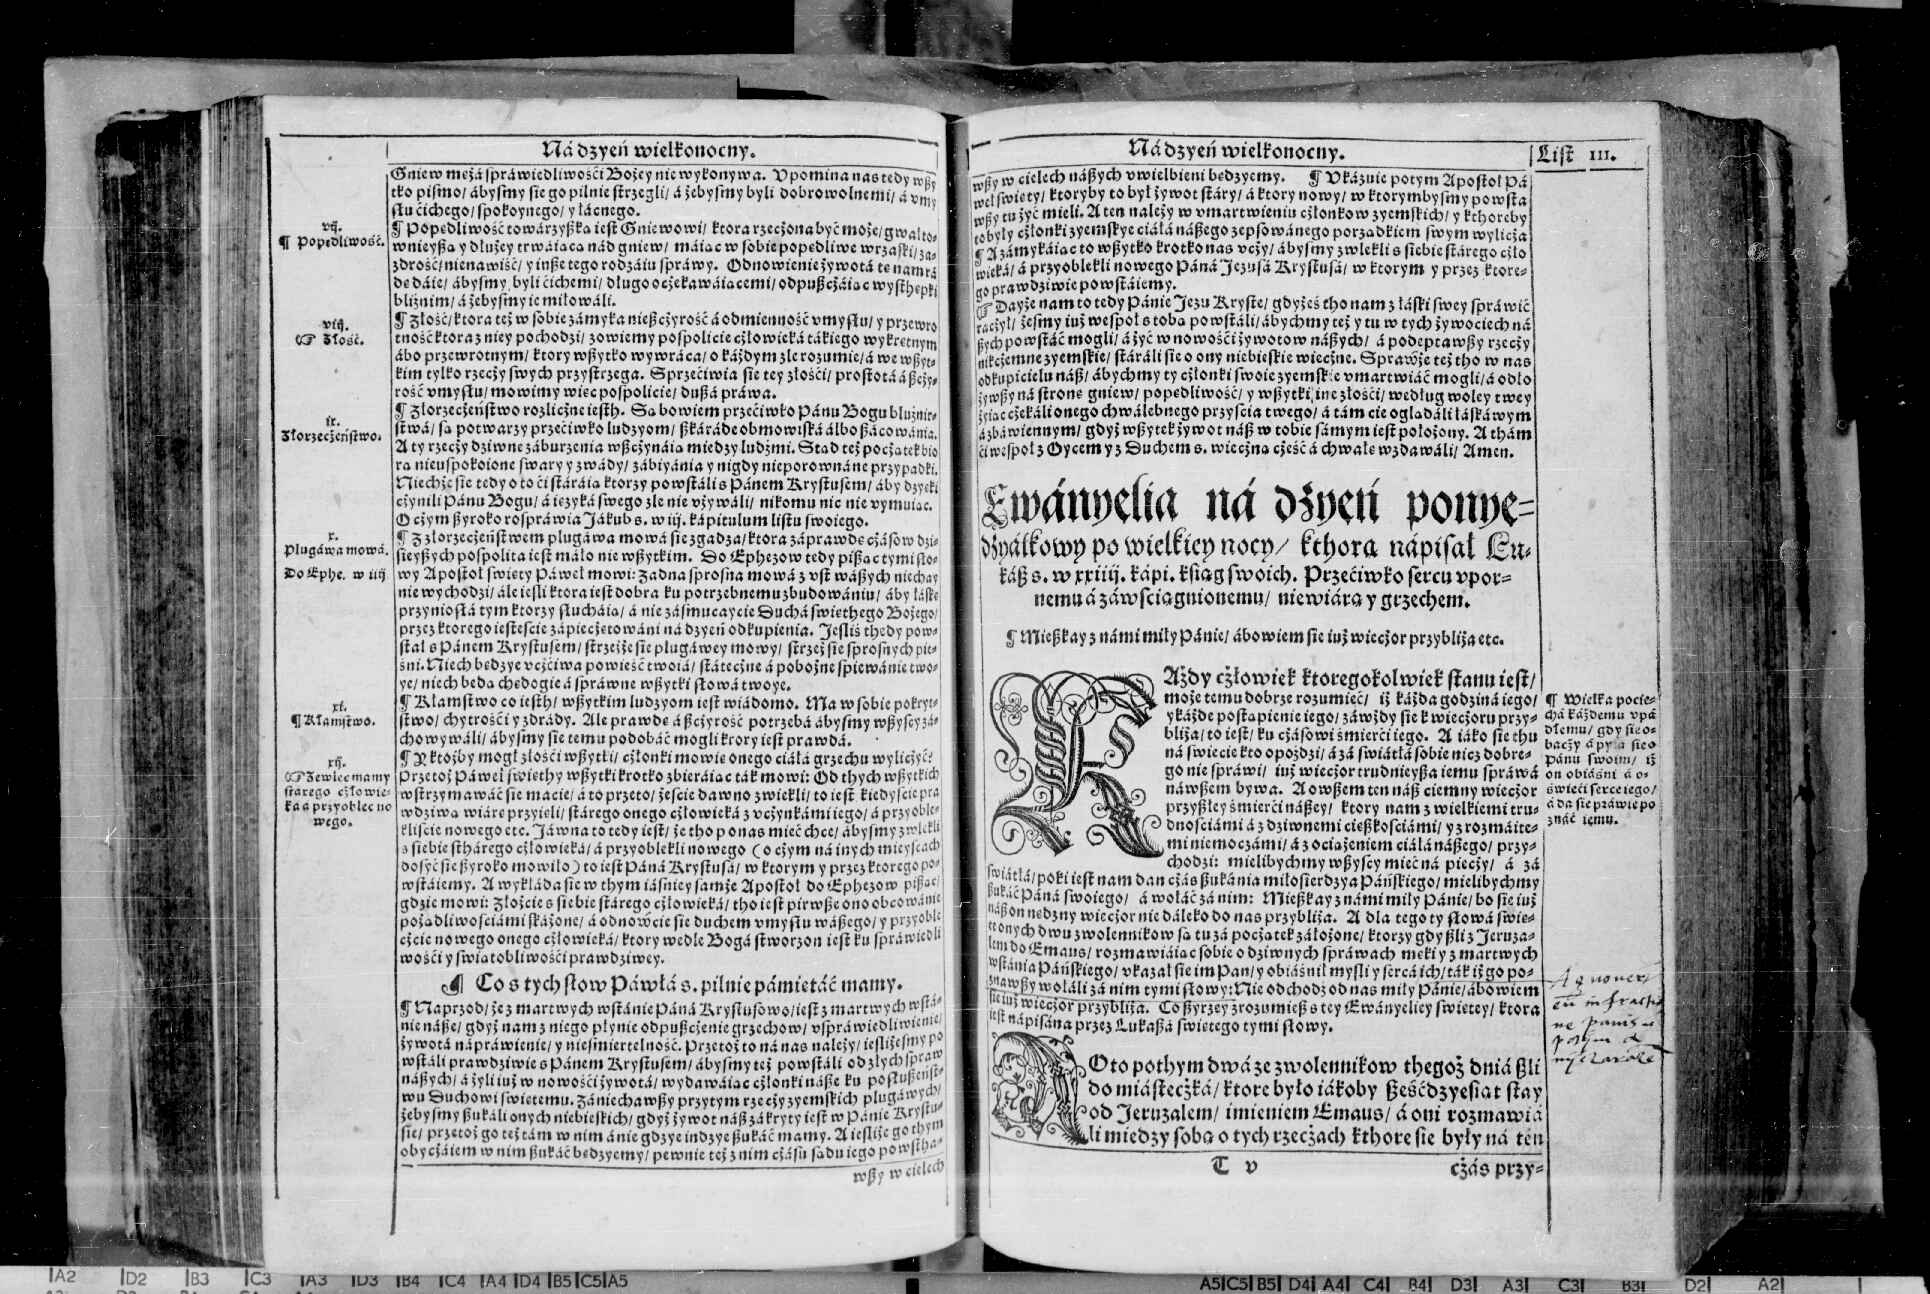 Ná dzyeń wielkonocny.
Gniew mężá spráwiedliwośći Bożey nie wykonywa. Vpomina nas tedy wßy
tko pismo/ ábysmy sie go pilnie strzegli/ á żebysmy byli dobrowolnemi/ á vmy
słu ćichego/ spokoynego/ y łácnego.
vij.
¶ Popędliwość.
¶ Popędliwość towárzyßká iest Gniewowi/ ktora rzeczona być może/ gwałto-
wnieyßa y dłużey trwáiąca nád gniew/ máiąc w sobie popędliwe wrzaski/ za-
zdrość/ nienawiść/ y inße tego rodzáiu spráwy. Odnowienie żywotá tę nam rá
dę dáie/ ábysmy byli ćichemi/ długo oczekawáiącemi/ odpußczáiąc wysthępki
bliźnim/ á żebysmy ie miłowáli.
viij.
☞ Złość.
¶ Złość/ ktora też w sobie zámyka nießczyrość á odmienność vmysłu/ y przewro
tność ktora z niey pochodzi/ zowiemy pospolicie człowieká tákiego wykrętnym
ábo przewrotnym/ ktory wßytko wywráca/ o káżdym źle rozumie/ á we wßyt-
kim tylko rzeczy swych przystrzega. Sprzećiwia sie tey złośći/ prostotá á ßczy-
rość vmysłu/ mowimy więc pospolicie/ dußá práwa.
ix.
Złorzeczeństwo.
¶ Złorzeczeństwo rozliczne iesth. Są bowiem przećiwko Pánu Bogu bluźnir-
stwá/ są potwarzy przećiwko ludzyom/ ßkárádé obmowiská álbo ßácowánia.
A ty rzeczy dziwne záburzenia wßczynáią miedzy ludźmi. Stąd też początek bio
rą nieuspokoione swary y zwády/ zábiyánia y nigdy nieporownáne przypadki.
Niechże sie tedy o to ći stáráią ktorzy powstáli s Pánem Krystusem/ áby dzyęki
czynili Pánu Bogu/ á ięzyká swego źle nie vżywáli/ nikomu nic nie vymuiąc.
O czym ßyroko rospráwia Jákub s. w iij. kápitulum listu swoiego.
x.
Plugáwa mowá.
Do Ephe. w iiij
¶ Z złorzeczeństwem plugáwa mowá sie zgadza/ ktora záprawdę czásow dzi-
sieyßych pospolita iest máło nie wßytkim. Do Ephezow tedy pißąc tymi sło-
wy Apostoł święty Páweł mowi: Zadna sprosna mowá z vst wáßych niechay
nie wychodzi/ ále iesli ktora iest dobra ku potrzebnemu zbudowániu/ áby łáskę
przyniosłá tym ktorzy słucháią/ á nie zásmucaycie Duchá świethego Bożego/
przez ktorego iestescie zápieczętowáni ná dzyeń odkupienia. Jesliś thedy pow-
stał s Pánem Krystusem/ strzeżże sie plugáwey mowy/ strzeż sie sprosnych pie-
śni. Niech będzye vczćiwa powieść twoiá/ státeczne á pobożne śpiewánie two-
ye/ niech będą chędogie á spráwne wßytki słowá twoye.
xi.
¶ Kłamstwo.
¶ Kłamstwo co iesth/ wßytkim ludzyom iest wiádomo. Ma w sobie pokryt-
stwo/ chytrośći y zdrády. Ale prawdę á ßczyrość potrzebá ábysmy wßyscy zá-
chowywáli/ ábysmy sie temu podobáć mogli ktory iest prawdá.
xij.
☞ Zewlec mamy
stárego człowie-
ká á przyoblec no
wego.
¶ Y ktożby mogł złośći wßytki/ członki mowię onego ciáłá grzechu wyliczyć?
Przetoż Páweł świethy wßytki krotko zbieráiąc ták mowi: Od thych wßytkich
wstrzymawáć sie macie/ á to przeto/ żeście dawno zwlekli/ to iest kiedyście pra
wdziwą wiárę przyięli/ stárego onego człowieká z vczynkámi iego/ á przyoble-
kliście nowego etc. Jáwna to tedy iest/ że tho po nas mieć chce/ ábysmy zwlekli
s siebie sthárego człowieká/ á przyoblekli nowego (o czym ná inych mieyscách
dosyć sie ßyroko mowiło) to iest Páná Krystusá/ w ktorym y przez ktorego po-
wstáiemy. A wykłáda sie w thym iáśniey samże Apostoł do Ephezow pißąc/
gdzie mowi: Złożcie s siebie stárego człowieká/ tho iest pirwße ono obcowánie
pożądliwosciámi skáżone/ á odnowcie sie duchem vmysłu wáßego/ y przyoble
czcie nowego onego człowieká/ ktory wedle Bogá stworzon iest ku spráwiedli
wośći y świątobliwośći prawdziwey.
¶ Co s tych słow Páwłá s. pilnie pámiętáć mamy.
¶ Naprzod/ że z martwych wstánie Páná Krystusowo/ iest z martwych wstá-
nie náße/ gdyż nam z niego płynie odpußczenie grzechow/ vspráwiedliwienie/
żywotá nápráwienie/ y nieśmiertelność. Przetoż to ná nas należy/ iesliżesmy po
wstáli prawdziwie s Pánem Krystusem/ ábysmy też powstáli od złych spraw
náßych/ á żyli iuż w nowośći żywotá/ wydawáiąc członki náße ku poslußeńst-
wu Duchowi świętemu. Zániechawßy przytym rzeczy zyemskich plugáwych/
żebysmy ßukáli onych niebieskich/ gdyż żywot náß zákryty iest w Pánie Krystu-
sie/ przetoż go też tám w nim á nie gdzye indzye ßukáć mamy. A iesliże go thym
obyczáiem w nim ßukáć będzyemy/ pewnie też z nim czásu sądu iego powsthá-
wßy w cielech
Ná dzyeń wielkonocny.
List III.
wßy w cielech náßych vwielbieni będzyemy. ¶ Vkázuie potym Apostoł Pá
weł święty/ ktoryby to był żywot stáry/ á ktory nowy/ w ktorymbysmy powstá
wßy tu żyć mieli. A ten należy w vmartwieniu członkow zyemskich/ y kthoreby
to były członki zyemskye ciáłá náßego zepsowánego porządkiem swym wylicza
¶ A zámykáiąc to wßytko krotko nas vczy/ ábysmy zwlekli s siebie stárego czło
wieká/ á przyoblekli nowego Páná Jezusá Krystusá/ w ktorym y przez ktore-
go prawdziwie powstáiemy.
☞ Dayże nam to tedy Pánie Jezu Kryste/ gdyżeś tho nam z łáski swey spráwić
raczył/ żesmy iuż wespoł s tobą powstáli/ ábychmy też y tu w tych żywociech ná
ßych powstáć mogli/ á żyć w nowośći żywotow náßych/ á podeptawßy rzeczy
nikczemne zyemskie/ stáráli sie o ony niebieskie wieczne. Sprawże też tho w nas
odkupicielu náß/ ábychmy ty członki swoie zyemskie vmartwiáć mogli/ á odło
żywßy ná stronę gniew/ popędliwość/ y wßytki ine złośći/ według woley twey
żyiąc czekáli onego chwálebnego przyścia twego/ á tám cię oglądáli łáskáwym
á zbáwiennym/ gdyż wßytek żywot náß w tobie sámym iest położony. A thám
ći wespoł z Oycem y z Duchem s. wieczną cześć á chwałę wzdawáli/ Amen.
Ewányelia ná dzyeń ponye-
dzyałkowy po wielkiey nocy/ kthorą nápisał Lu-
káß s. w xxiiij. kápi. ksiąg swoich. Przećiwko sercu vpor-
nemu á záwściągnionemu/ niewiárą y grzechem.
¶ Mießkay z námi miły Pánie/ ábowiem sie iuż wieczor przybliża etc.
KAżdy człowiek ktoregokolwiek stanu iest/
może temu dobrze rozumieć/ iż káżda godziná iego/
y káżde postąpienie iego/ záwżdy sie k wieczoru przy-
bliża/ to iest/ ku czásowi śmierći iego. A iáko sie thu
ná świecie kto opoździ/ á zá światłá sobie nicz dobre-
go nie spráwi/ iuż wieczor trudnieyßa iemu spráwá
náwßem bywa. A owßem ten náß ciemny wieczor
przyßłey śmierći náßey/ ktory nam z wielkiemi tru-
dnosciámi á z dziwnemi ciężkosciámi/ y z rozmáite-
mi niemoczámi/ á z ociążeniem ciáłá náßego/ przy-
chodzi: mielibychmy wßyscy mieć ná pieczy/ á zá
świátłá/ poki iest nam dan czás ßukánia miłosierdzya Páńskiego/ mielibychmy
ßukáć Páná swoiego/ á wołáć zá nim: Mießkay z námi miły Pánie/ bo sie iuż
náß on nędzny wieczor nie dáleko do nas przybliża. A dla tego ty słowá świę-
te onych dwu zwolennikow są tu zá początek záłożone/ ktorzy gdy ßli z Jeruza-
lem do Emaus/ rozmawiáiąc sobie o dziwnych spráwach męki y z martwych
wstánia Páńskiego/ vkazał sie im Pan/ y obiáśnił myśli y sercá ich/ ták iż go po-
znawßy wołáli zá nim tymi słowy: Nie odchodź od nas miły Pánie/ ábowiem
sie iuż wieczor przybliża. Co ßyrzey zrozumieß s tey Ewányeliey świętey/ ktora
iest nápisána przez Lukaßá świętego tymi słowy.
¶ Wielka pocie-
chá káżdemu vpá
dłemu/ gdy sie o-
baczy á pyta sie o
Pánu swoim/ iż
on obiáśni á o-
świeći serce iego/
á da sie práwie po
znáć iemu.
Agnover
eũ in fractio
ne panis
OTo pothym dwá ze zwolennikow thegoż dniá ßli
do miásteczká/ ktore było iákoby ßeśćdzyesiąt stay
od Jeruzalem/ imieniem Emaus/ á oni rozmawiá
li miedzy sobą o tych rzeczách kthore sie były ná ten
T v
czás przy-
A2 D2 B3 C3 A3 D3 B4 C4 A4 D4 B5 C5 A5
A5 C5 B5 D4 A4 C4 B4 D3 A3 C3 B3 D2 A2